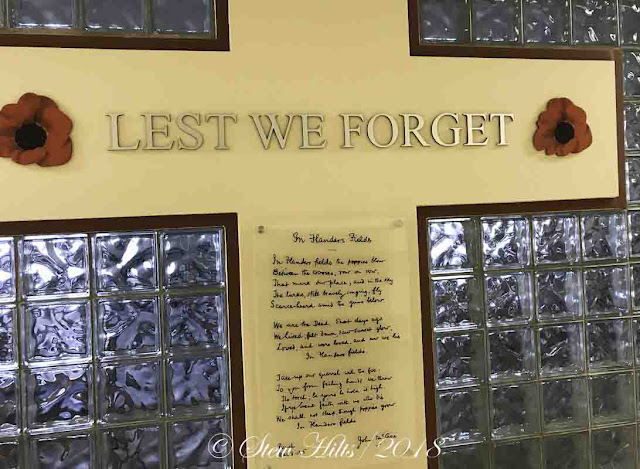 LEST WE FORGET
In Flanders Fields
In Flanders fields the poppies blow
Between the crosses, row on row,
That mark our place; and in the sky
The larks, still bravely singing, fly
Scarce heard amid the guns below.
We are the Dead. Short days ago
We lived, felt dawn, saw sunset glow,
Loved, and were loved, and now we lie
In Flanders fields.
Take up our quarrel with the foe:
To you from failing hands we throw
The torch; be yours to hold it high.
If ye break faith with us who die
We shall not sleep, though poppies grow
In Flanders fields
John McCrae
© Stew Hilts / 2018